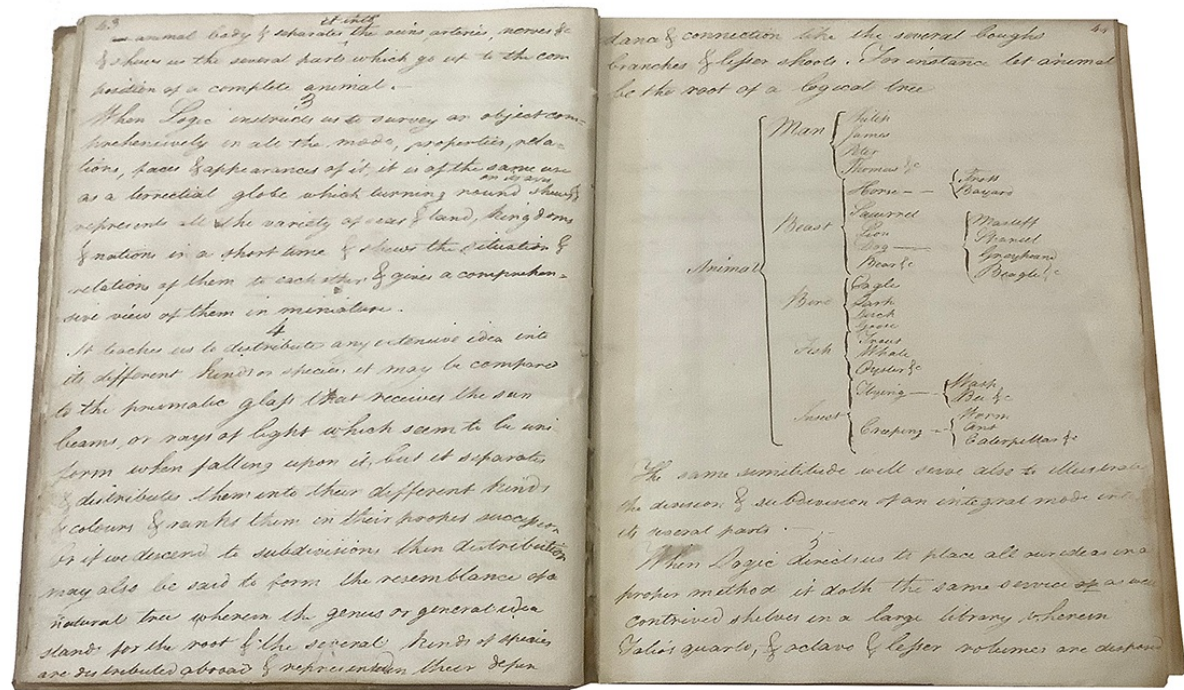 43
an animal body & separates it into the veins arteries, nerves &c
& shews us the several parts which go up to the com
position of a complete animal. –
3
When Logic instructs us to survey an object com=
prehensively in all the modes, properties, rela=
tions, faces & appearances of it, it is of the same use
as a terrectial globe which turning round on its axis shews &
represents all the variety of seas & land, kingdoms
& nations in a short time & shews the situation &
relation of them to each other & gives a comprehen=
sive view of them in miniature.
4
It teaches us to distribute any extensive idea into
its different kinds or species, it may be compared
to the prismatic glass that receives the sun
beams, or rays of light which seem to be uni
form when falling upon it, but it separates
& distributes them into their different kinds
& colours & ranks them in their proper succession
or if we descend to subdivisions then distribution
may also be said to form the resemblance of a
natural tree wherein the genus or general idea
stands for the root & the several kinds of species
are distributed abroad & represented in their depen
44
dance & connection like the several boughs
branches & lesser shoots. For instance let animal
be the root of a logical tree
Animal
Man
Philip
James
Peter
Thomas &c
Beast
Horse – –
Trott
Bayard
Squirrel
Lion
Dog –
Mastiff
Spaniel
Greyhound
Beagle &c
Bear &c
Bird
Eagle
Lark
Duck
Goose
Fish
Trout
Whale
Oyster &c
Insect
Flying –
Wasp
Bee &c
Creeping –
Worm
Ant
Caterpillar &c
The same similitude will serve also to illustrate
the division & subdivision of an integral mode into
its several parts. –
5
When Logic directs us to place all our ideas in a
proper method it doth the same service as a well
contrived shelves in a large library wherein
Folios quarto, & octavo & lesser volumes are disposed